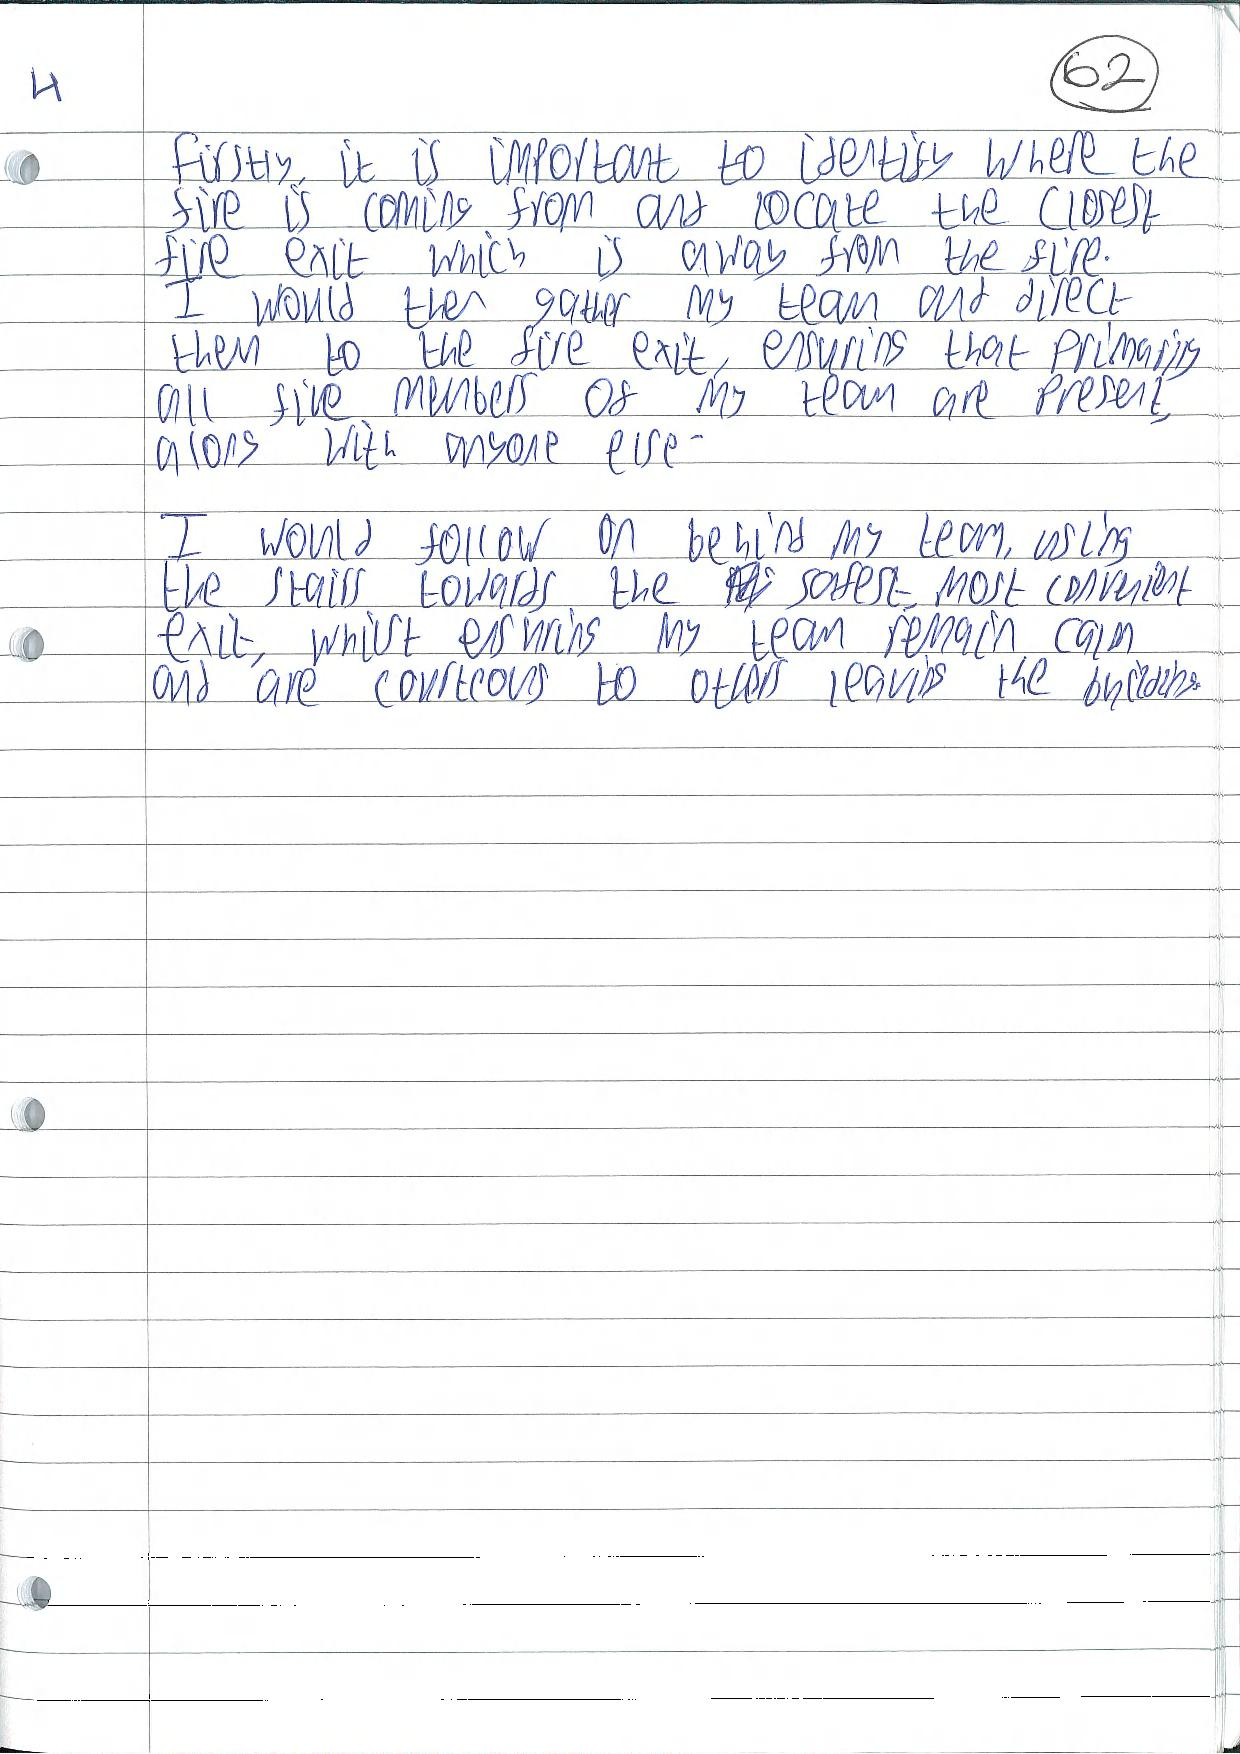 4
62
Firstly, it is important to identify where the
fire is coming from and locate the closest
fire exit which is away from the fire.
I would then gather my team and direct
them to the fire exit, ensuring that primarily
all five members of my team are present,
along with anyone else-
I would follow on behind my team, using
the stairs towards the safest, most convenient
exit, whilst ensuring my team remain calm
and are courteous to others leaving the building.